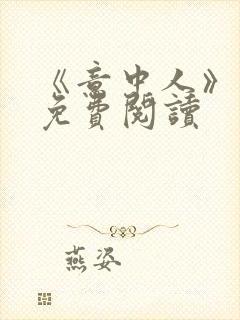 《意中人》
免費閱讀
燕姿